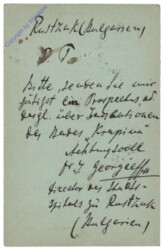 Rustzuk (Bulgarien)
P. T.
Bitte, senden Sie mir
gütigst ein Prospectus od.
dergl. über Indikationen
des Bades "Krapina"
Achtungsvoll
Georgieff
Director des Staats-
spitals zu Rustzuk
(Bulgarien)